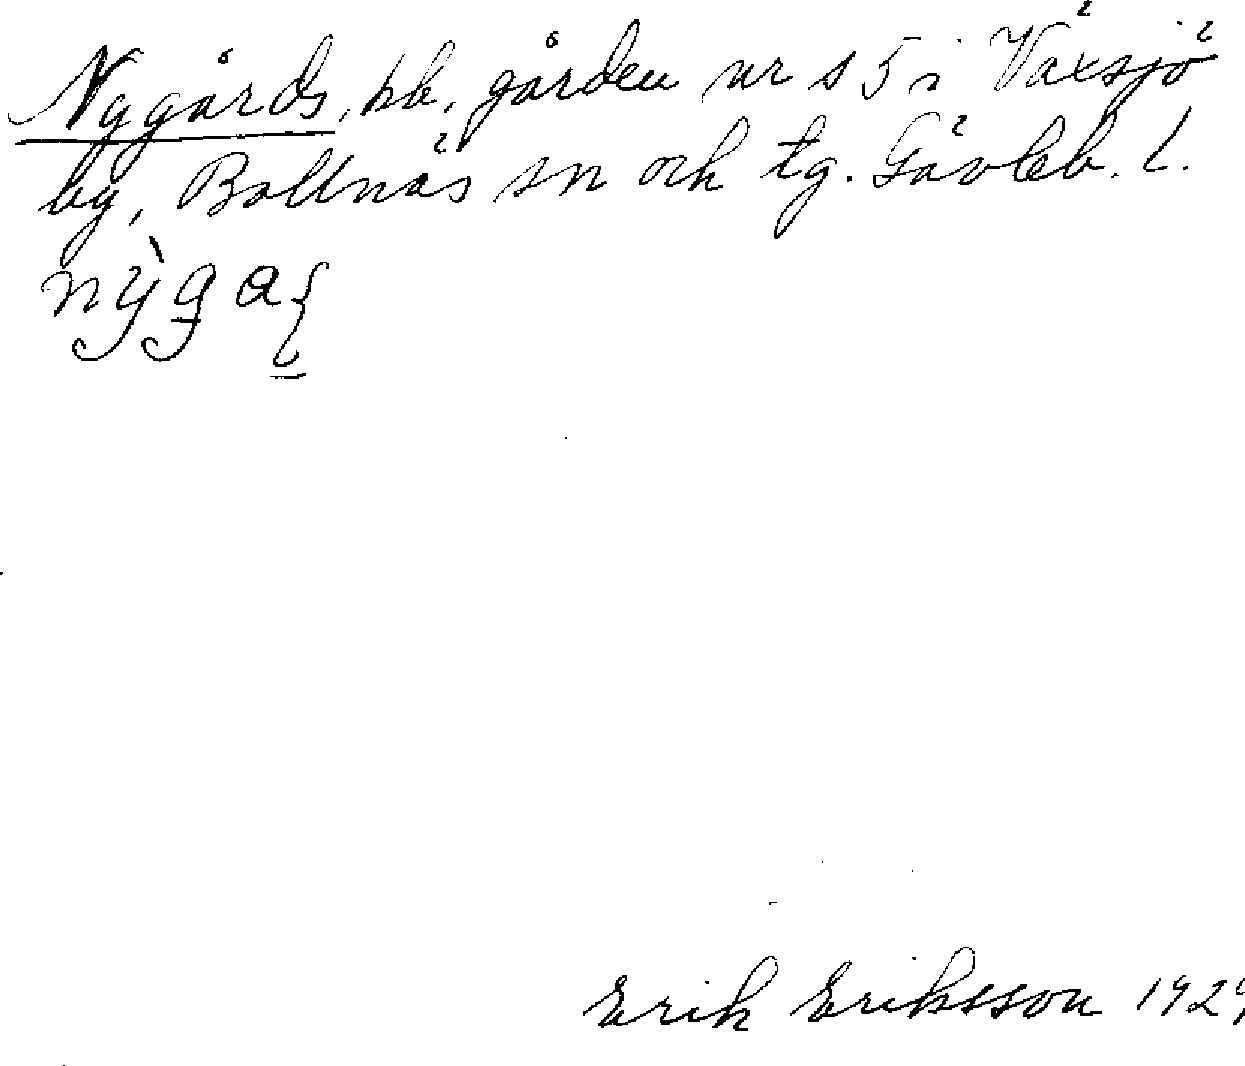 Nygårds, hb, gården nr s 5 i Växsjö
by, Bollnäs sn och tg. Gävleb. l.
Erik Eriksson 192